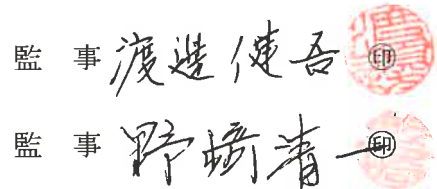 監 事 渡邉健吾 ㊞
監 事 野﨑清一 ㊞